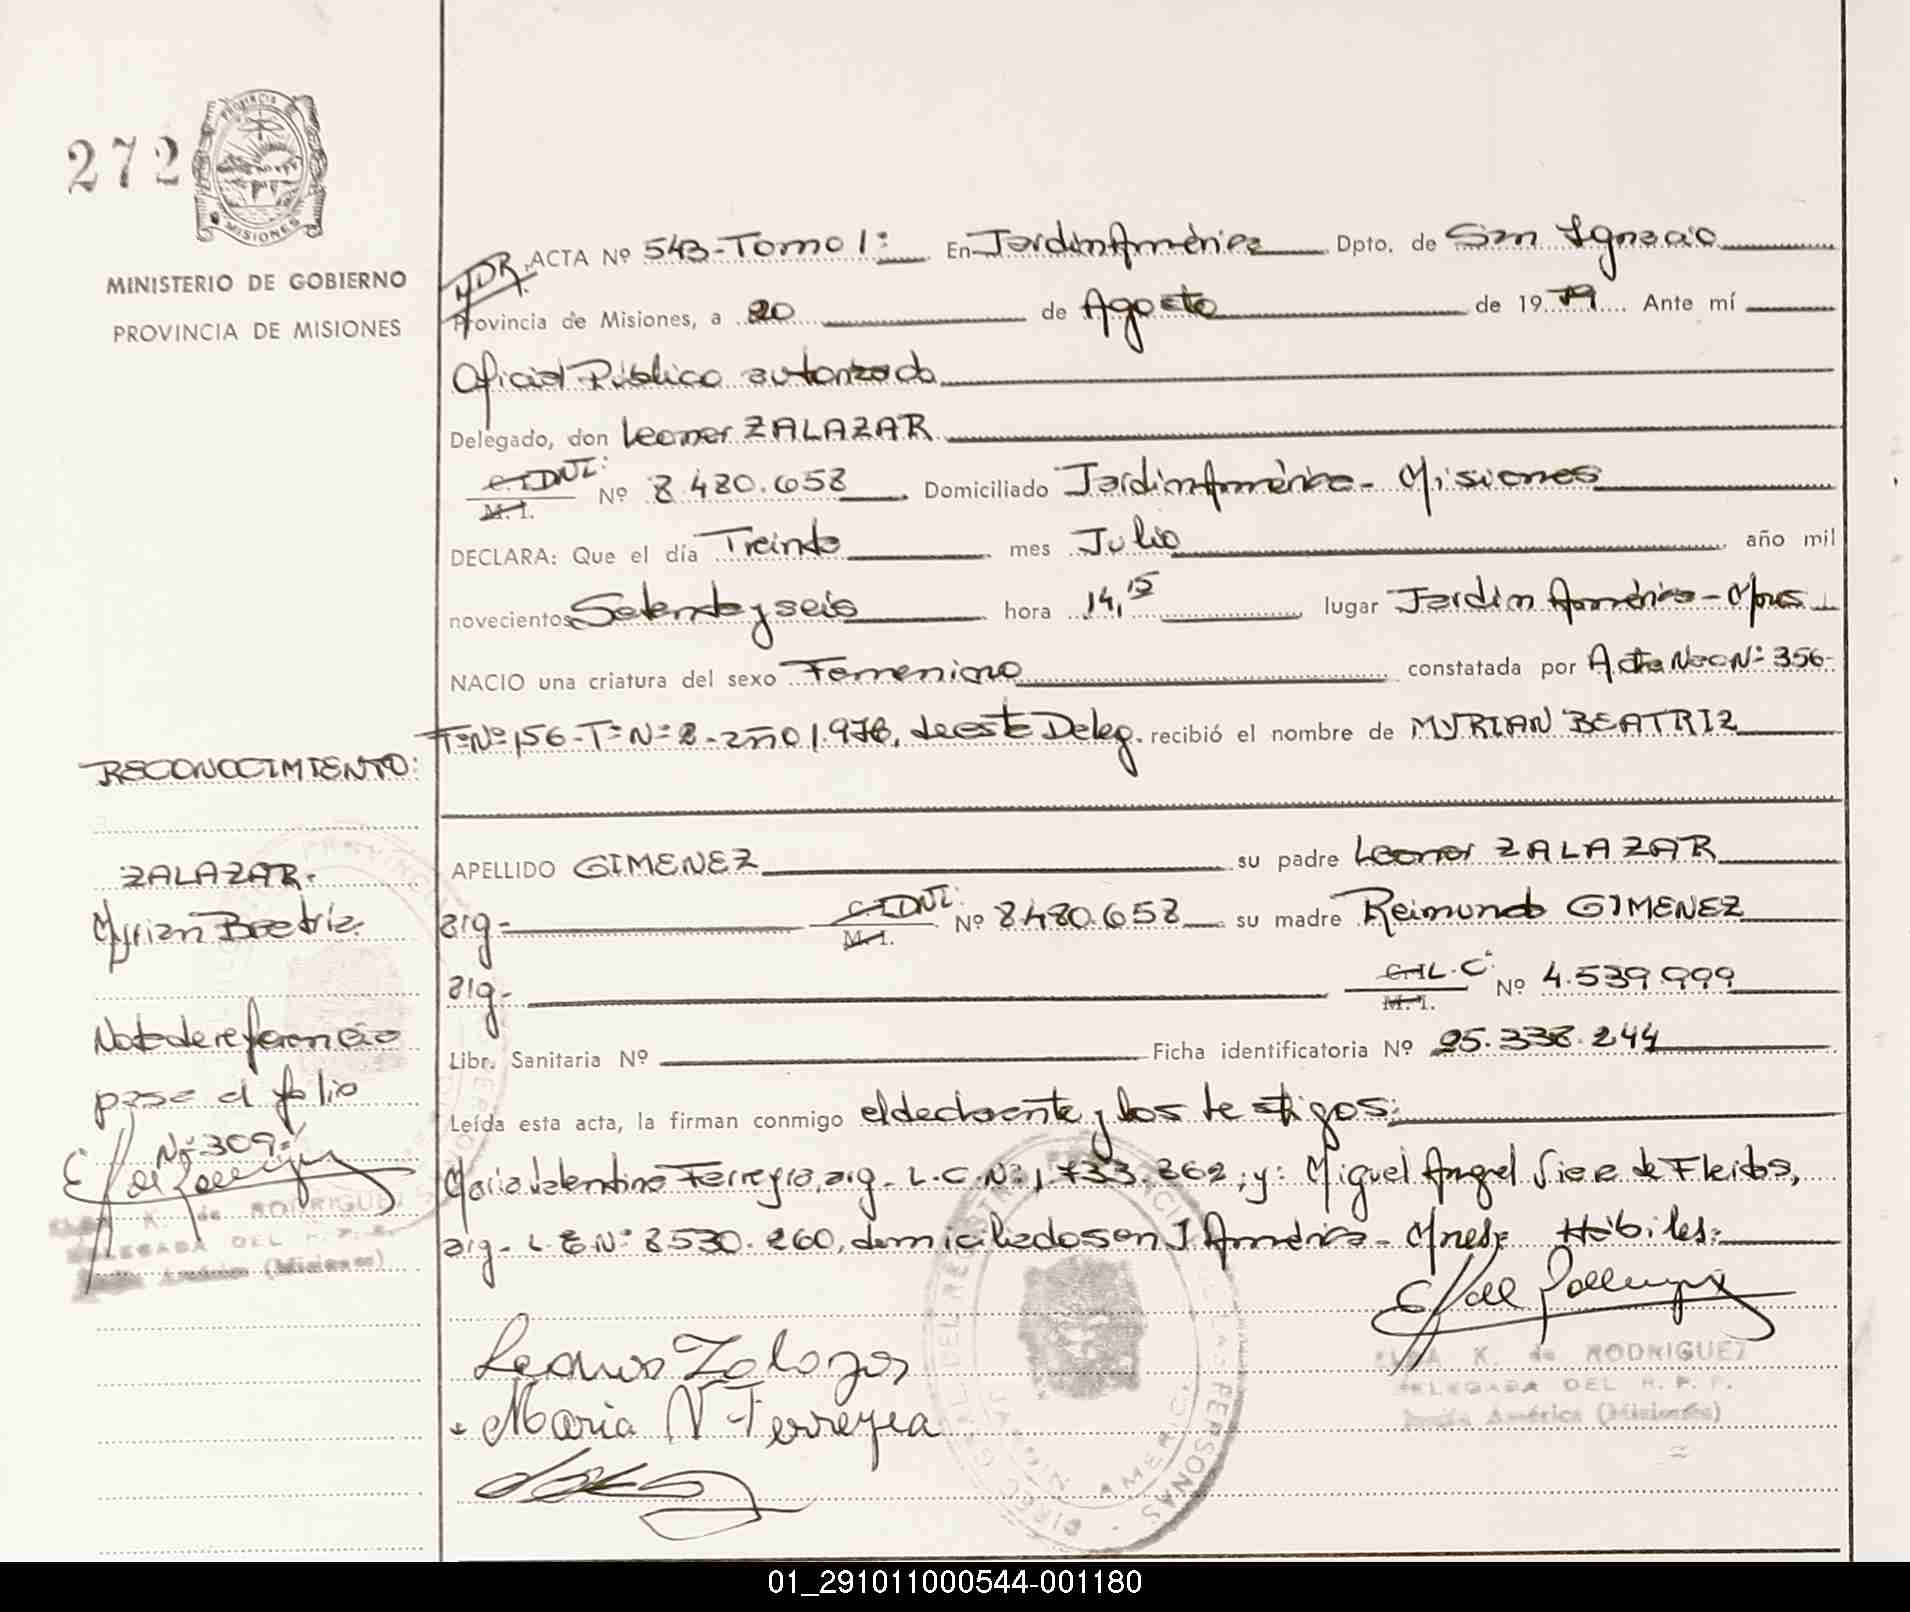 272
PROVINCIA
MISIONES
MINISTERIO DE GOBIERNO
PROVINCIA DE MISIONES
ACTA Nº 543-Tomo 1º En Jardin América Dpto. de San Ignacio
Provincia de Misiones, a 20 de Agosto de 1979 Ante mí
Oficial Público autorizado
Delegado, don Leonor ZALAZAR
C.I DNI: M. I. Nº 8.480.658 Domiciliado Jardin América - Misiones
DECLARA: Que el día Treinta mes Julio año mil
novecientos Setenta y seis hora 14,15 lugar Jardin América - Mnes
NACIO una criatura del sexo Femenino constatada por Acta Nac Nº 356-
Fº Nº 156 - Tº Nº 2 - año 1.976, de este Deleg. recibió el nombre de MYRIAN BEATRIZ
RECONOCIMIENTO:
APELLIDO GIMENEZ su padre Leonor ZALAZAR
ZALAZAR.
Myrian Beatriz.
arg- C.I DNI: M. I. Nº 8480.658 su madre Reimunda GIMENEZ
arg- C.I L.C. M. I. Nº 4.539.999
Nota de referencia
Libr. Sanitaria Nº Ficha identificatoria Nº 25.338.244
pase al folio
Leída esta acta, la firman conmigo el declarante y los testigos:
Nº 309-
Maria Valentina Ferreyra, arg- L.C. Nº 1,733.262; y: Miguel Angel de Fleitas,
arg- L.E. Nº 8530.260, domiciliados en J. América - Mnes; Hábiles:
K. de RODRIGUEZ
DELEGADA DEL R. P. P.
Jardín América (Misiones)
Leonor Zalazar
Maria V Ferreyra
ELSA K. de RODRIGUEZ
DELEGADA DEL R. P. P.
Jardín América (Misiones)
01_291011000544-001180